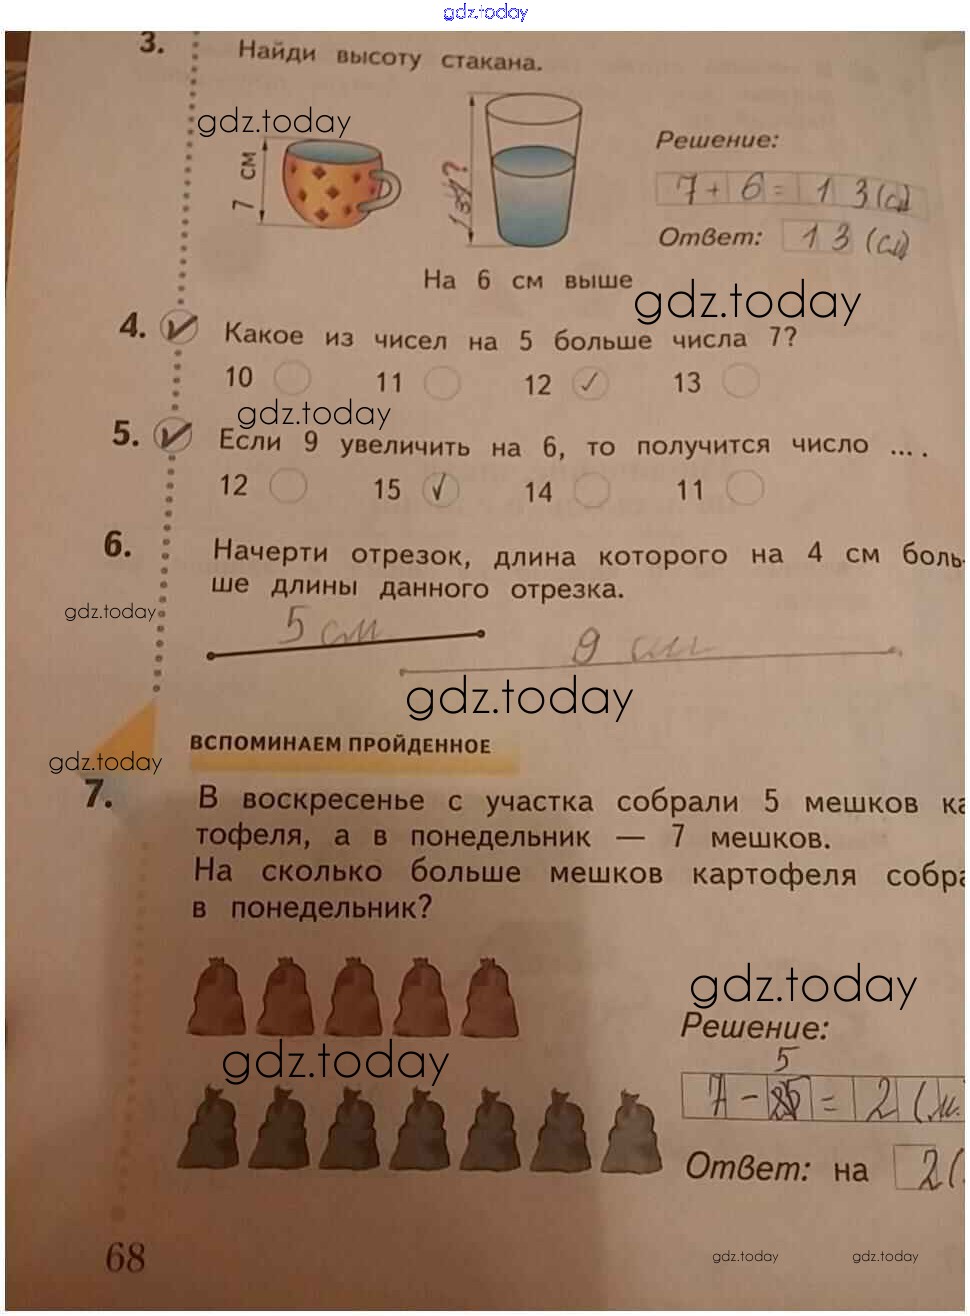 gdz.today
3. Найди высоту стакана.
gdz.today
7 см
?
Решение:
7 + 6 = 1 3 (см)
Ответ: 1 3 (см)
На 6 см выше
gdz.today
4. Какое из чисел на 5 больше числа 7?
10 11 12 ✓ 13
gdz.today
5. Если 9 увеличить на 6, то получится число ... .
12 15 ✓ 14 11
6. Начерти отрезок, длина которого на 4 см боль-
ше длины данного отрезка.
gdz.today
5 см
9 см
gdz.today
ВСПОМИНАЕМ ПРОЙДЕННОЕ
gdz.today
7. В воскресенье с участка собрали 5 мешков ка
тофеля, а в понедельник — 7 мешков.
На сколько больше мешков картофеля собра
в понедельник?
gdz.today
Решение:
gdz.today
5
7 - = 2 (м.
Ответ: на 2 (
68
gdz.today gdz.today